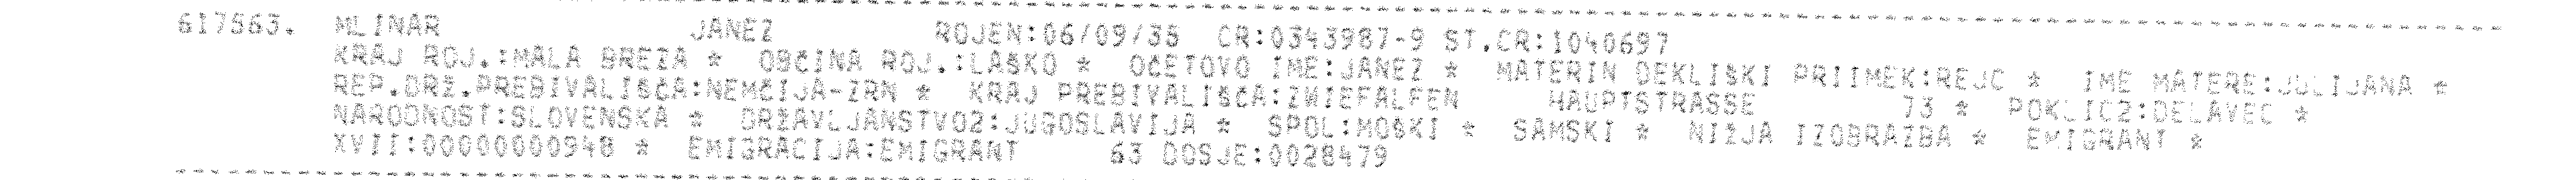 617563. MLINAR JANEZ ROJEN:06/09/35 CR:0343987-9 ST.CR:1040697
KRAJ ROJ.:MALA BREZA * OBČINA ROJ.:LAŠKO * OČETOVO IME:JANEZ * MATERIN DEKLIŠKI PRIIMEK:REJC * IME MATERE:JULIJANA *
REP.DRŽ.PREBIVALIŠČA:NEMČIJA-ZRN * KRAJ PREBIVALIŠČA:ZWIEFALFEN HAUPTSTRASSE 73 * POKLIC2:DELAVEC *
NARODNOST:SLOVENSKA * DRŽAVLJANSTVO2:JUGOSLAVIJA * SPOL:MOŠKI * SAMSKI * NIŽJA IZOBRAZBA * EMIGRANT *
XVII:00000000948 * EMIGRACIJA:EMIGRANT 63 DOSJE:0028479